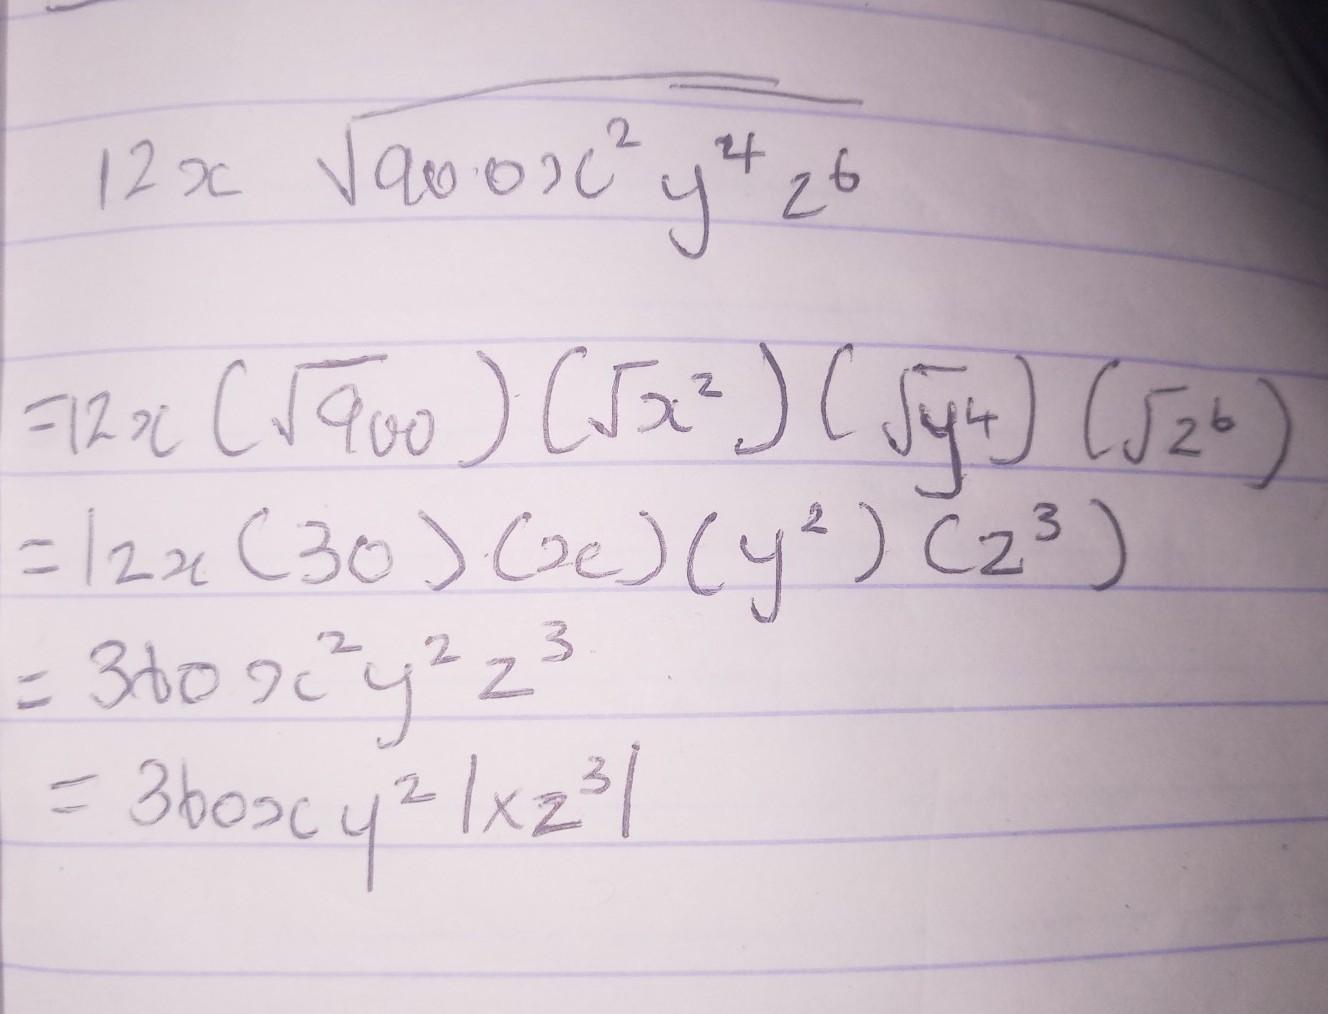 12x √900x²y⁴z⁶
=12x (√900) (√x²) (√y⁴) (√z⁶)
=12x (30) (x) (y²) (z³)
= 360x²y²z³
= 360xy²|xz³|